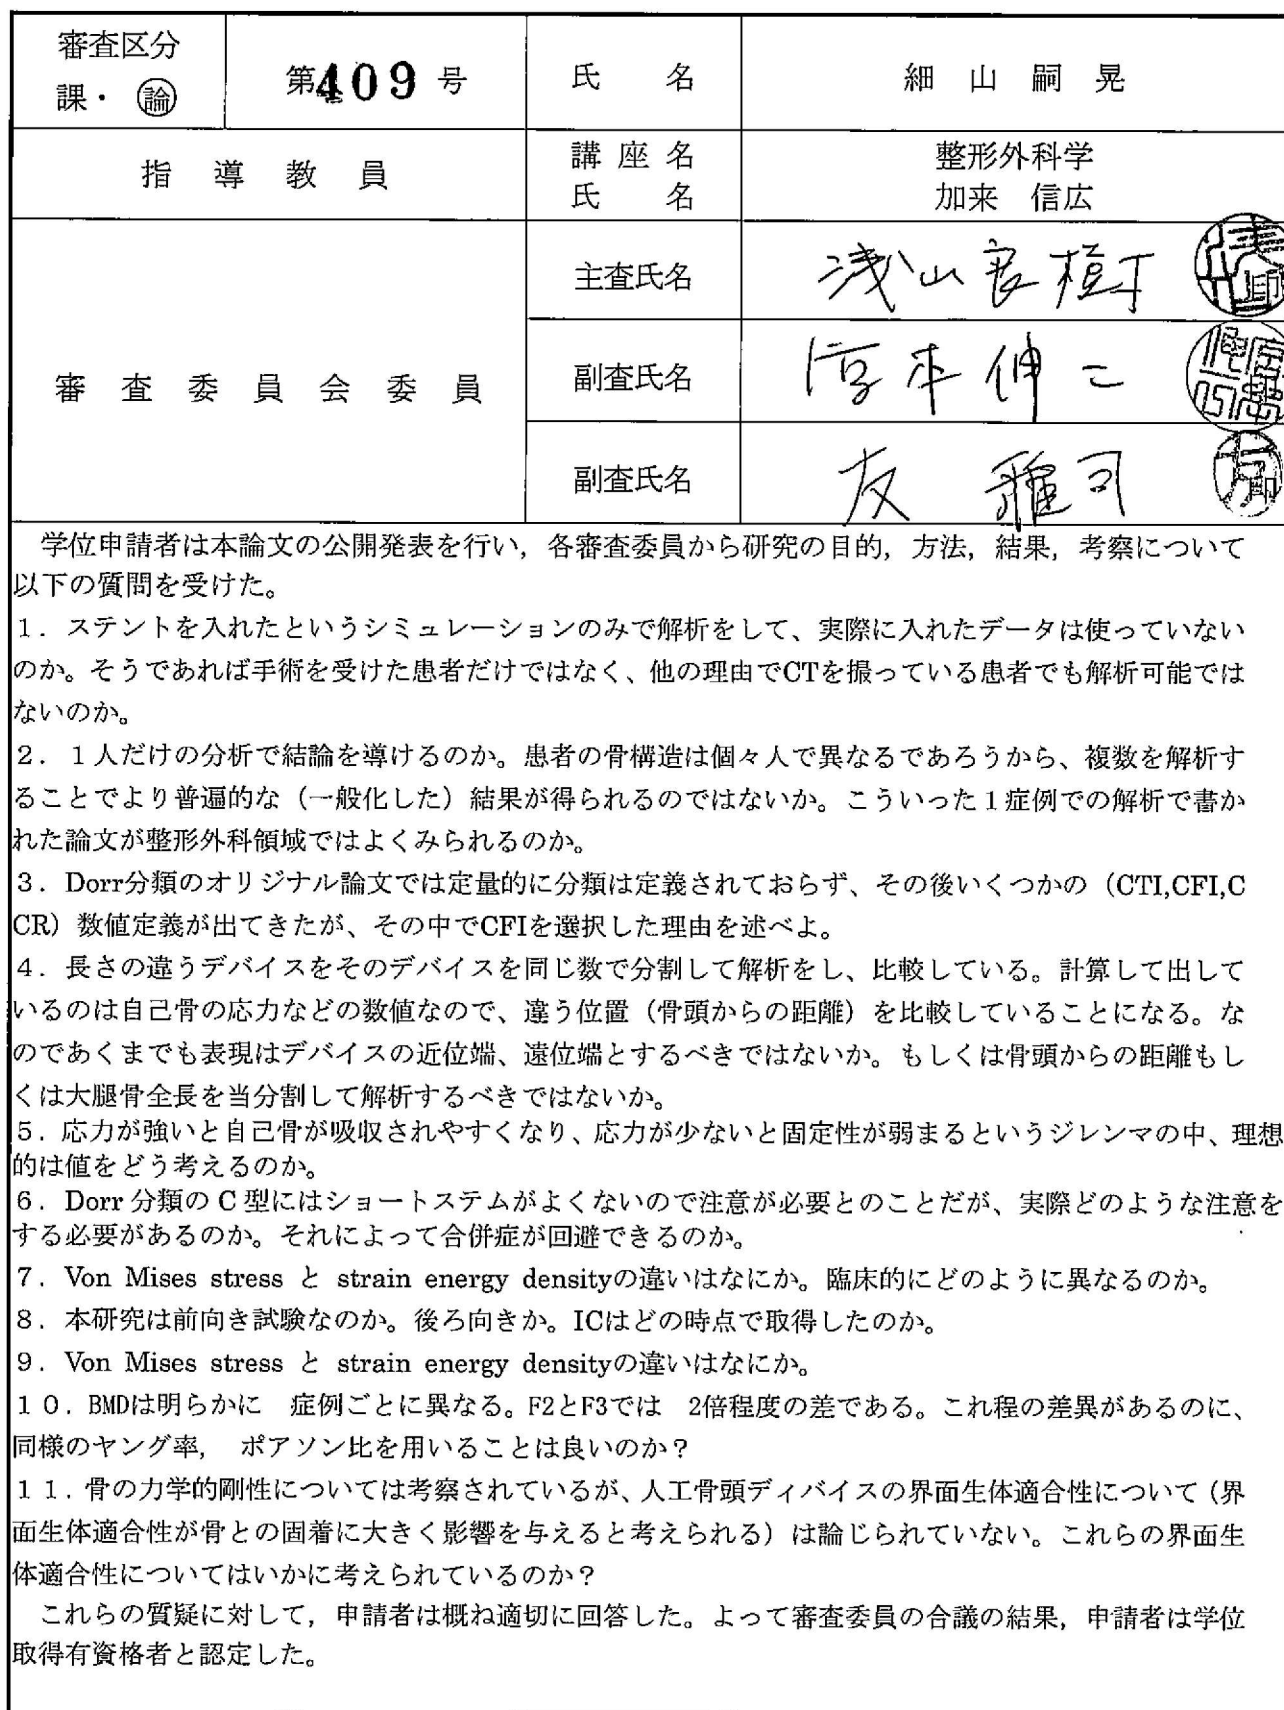 審査区分
課・論
第409号
氏 名
細 山 嗣 晃
指 導 教 員
講 座 名
氏 名
整形外科学
加来 信広
審 査 委 員 会 委 員
主査氏名
浅山良樹
副査氏名
伸二
副査氏名
友 雅司
学位申請者は本論文の公開発表を行い，各審査委員から研究の目的，方法，結果，考察について
以下の質問を受けた。
１．ステントを入れたというシミュレーションのみで解析をして、実際に入れたデータは使っていない
のか。そうであれば手術を受けた患者だけではなく、他の理由でCTを撮っている患者でも解析可能では
ないのか。
２．１人だけの分析で結論を導けるのか。患者の骨構造は個々人で異なるであろうから、複数を解析す
ることでより普遍的な（一般化した）結果が得られるのではないか。こういった１症例での解析で書か
れた論文が整形外科領域ではよくみられるのか。
３．Dorr分類のオリジナル論文では定量的に分類は定義されておらず、その後いくつかの（CTI,CFI,C
CR）数値定義が出てきたが、その中でCFIを選択した理由を述べよ。
４．長さの違うデバイスをそのデバイスを同じ数で分割して解析をし、比較している。計算して出して
いるのは自己骨の応力などの数値なので、違う位置（骨頭からの距離）を比較していることになる。な
のであくまでも表現はデバイスの近位端、遠位端とするべきではないか。もしくは骨頭からの距離もし
くは大腿骨全長を当分割して解析するべきではないか。
５．応力が強いと自己骨が吸収されやすくなり、応力が少ないと固定性が弱まるというジレンマの中、理想
的は値をどう考えるのか。
６．Dorr 分類の C 型にはショートステムがよくないので注意が必要とのことだが、実際どのような注意を
する必要があるのか。それによって合併症が回避できるのか。
７．Von Mises stress と strain energy densityの違いはなにか。臨床的にどのように異なるのか。
８．本研究は前向き試験なのか。後ろ向きか。ICはどの時点で取得したのか。
９．Von Mises stress と strain energy densityの違いはなにか。
１０．BMDは明らかに 症例ごとに異なる。F2とF3では 2倍程度の差である。これ程の差異があるのに、
同様のヤング率， ポアソン比を用いることは良いのか？
１１．骨の力学的剛性については考察されているが、人工骨頭ディバイスの界面生体適合性について（界
面生体適合性が骨との固着に大きく影響を与えると考えられる）は論じられていない。これらの界面生
体適合性についてはいかに考えられているのか？
これらの質疑に対して，申請者は概ね適切に回答した。よって審査委員の合議の結果，申請者は学位
取得有資格者と認定した。